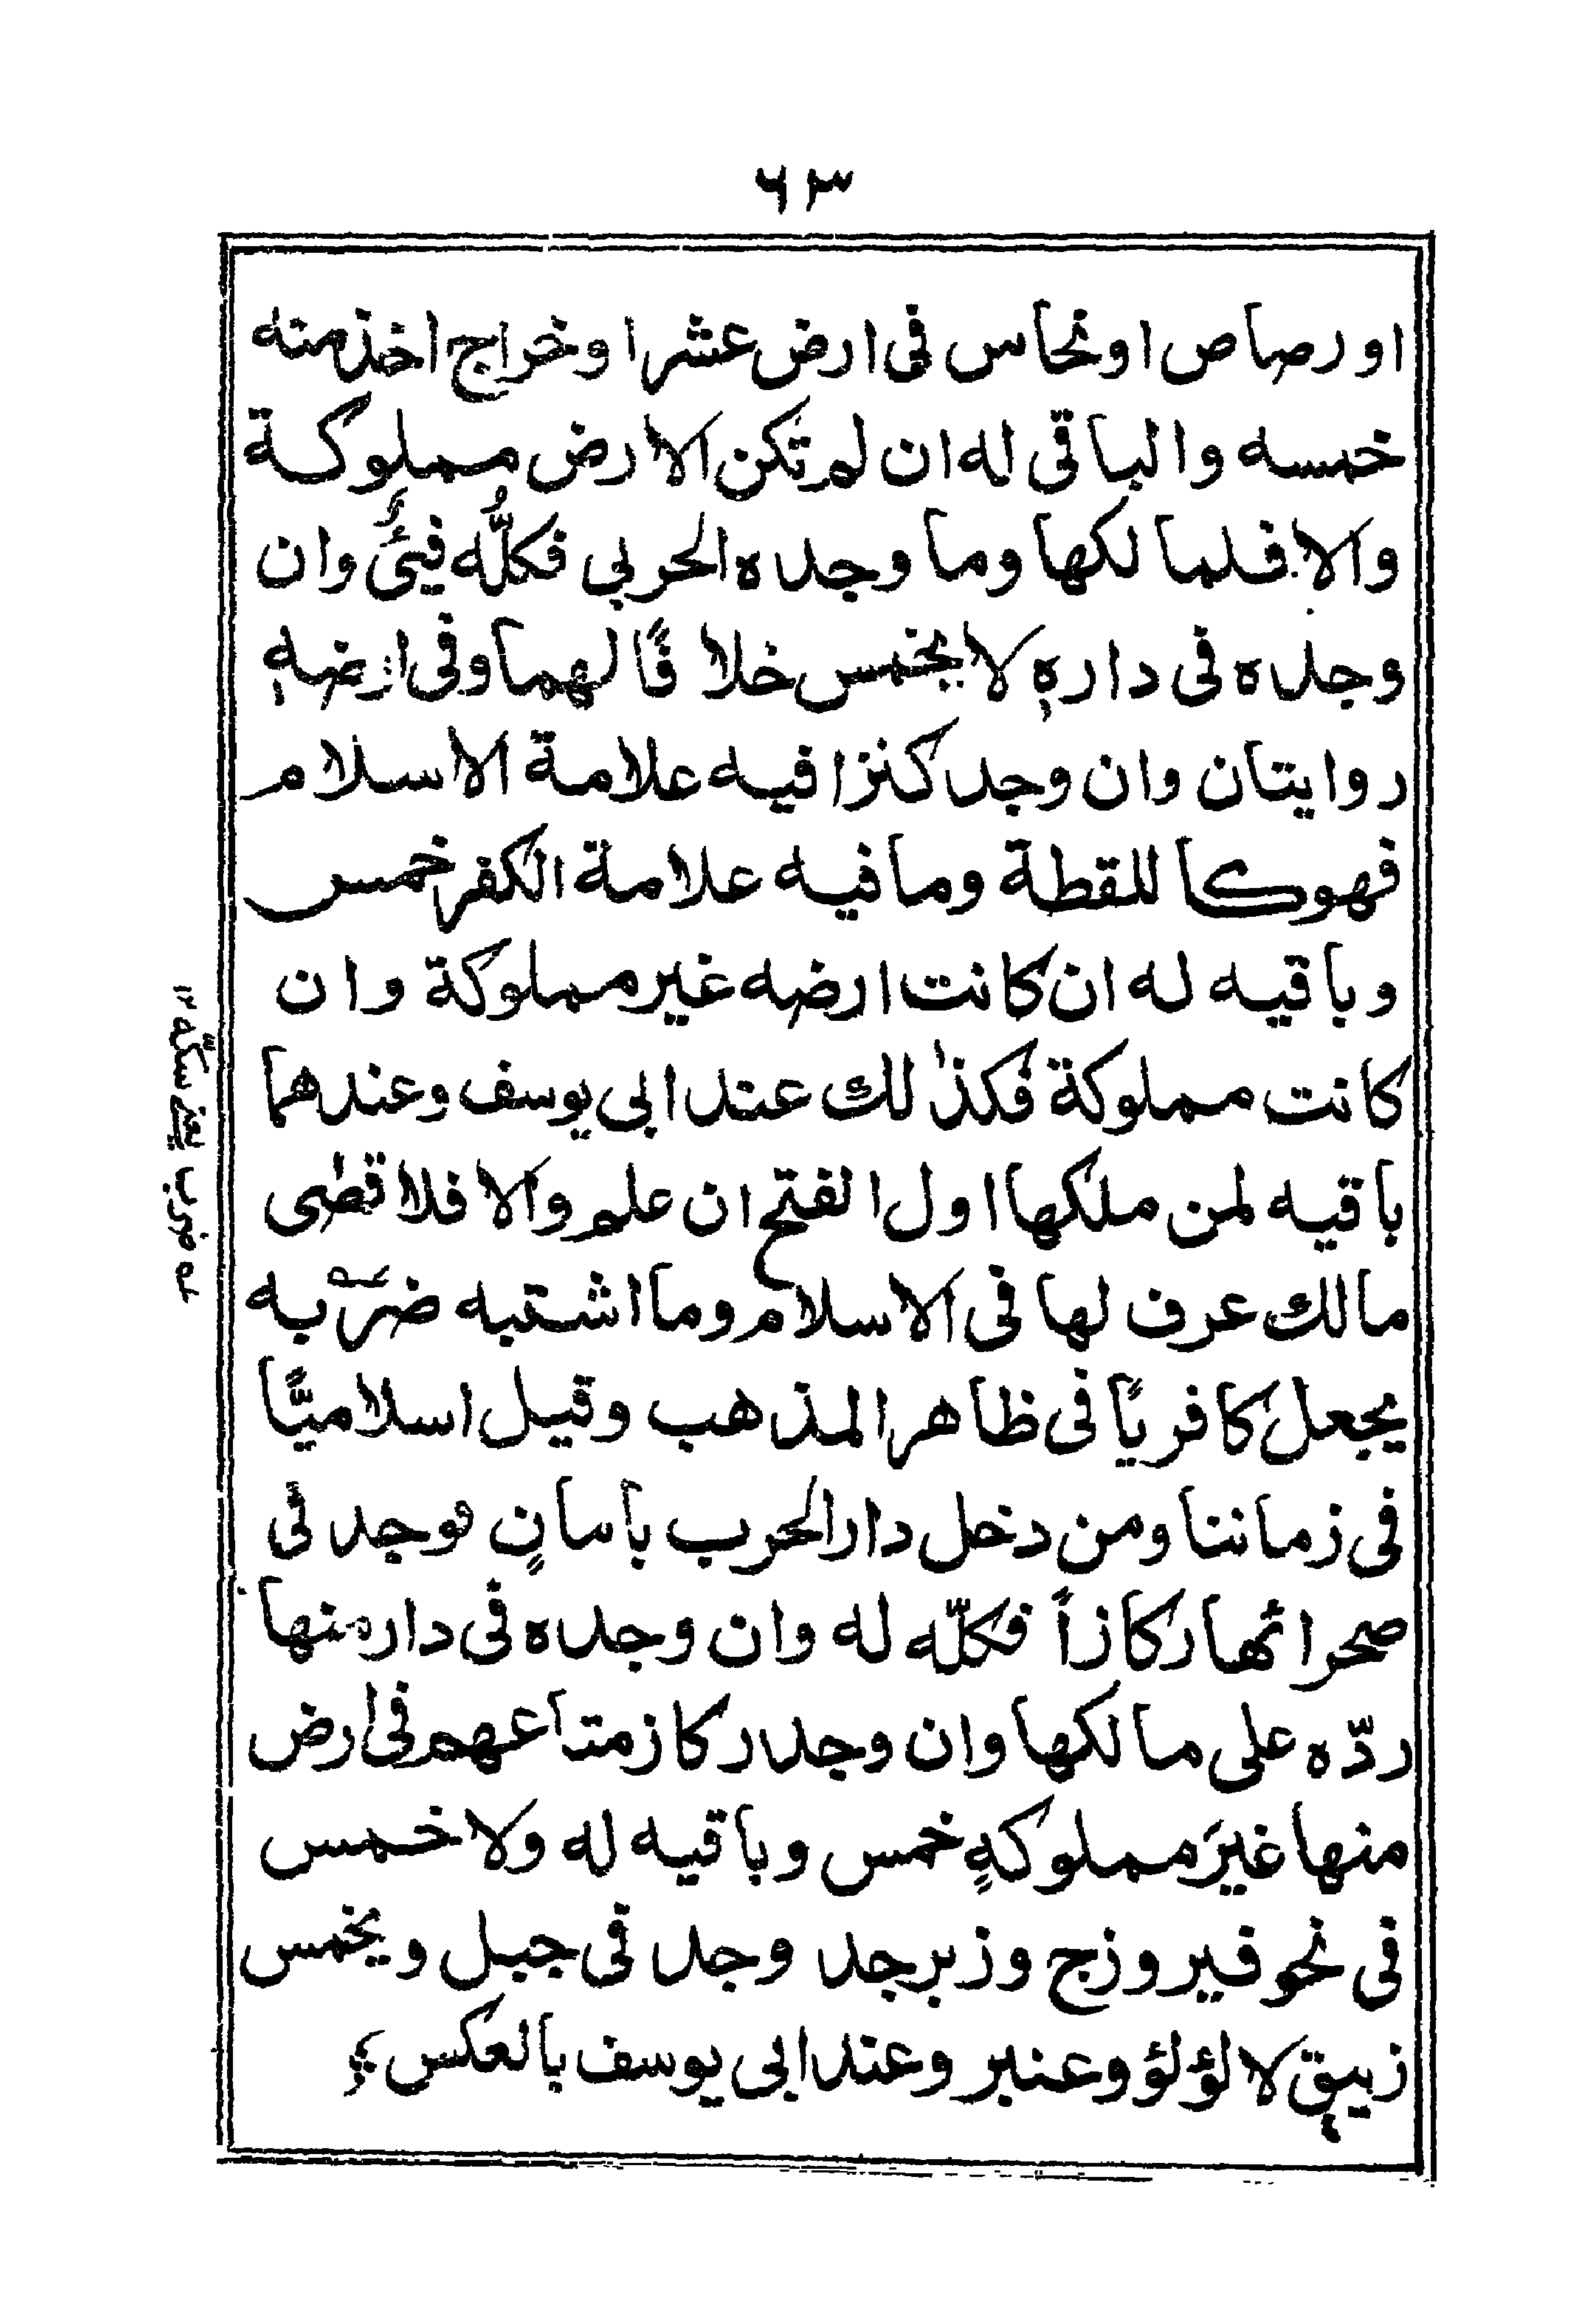 ٦٣
او رصاص او نحاس فى ارض عشر او خراج اخذ منه
خمسه والباقى له ان لم تكن الارض مملوكة
والا فلما لكها وما وجده الحربى فكلُّه فيئٌ وان
وجده فى دارهٖ لا يخمس خلافًا لهما وفى ارضهٖ
روايتان وان وجد كنزا فيه علامة الاسلام
فهو كا للقطة وما فيه علامة الكفر خمس
وباقيه له ان كانت ارضه غير مملوكة وان
كانت مملوكة فكذٰلك عند ابى يوسف وعندهما
باقيه لمن ملكها اول الفتح ان علم والا فلا قصٰى
مالك عرف لها فى الاسلام وما اشتبه ضربه
يجعل كافريًا فى ظاهر المذهب وقيل اسلاميًّا
فى زماننا ومن دخل دار الحرب بامانٍ فوجد فى
صحرائها ركازاً فكلّه له وان وجده فى دار منها
ردّه على مالكها وان وجد ركاز متاعهم فى ارض
منها غيرَ مملوكهٍ خمس وباقيه له ولا خمس
فى نحو فيروزج وزبرجد وجد فى جبل ويخمس
زيبق لا لؤلؤ وعنبر وعند ابى يوسف بالعكس
ـه ضرب يعنے سكّه ١٢